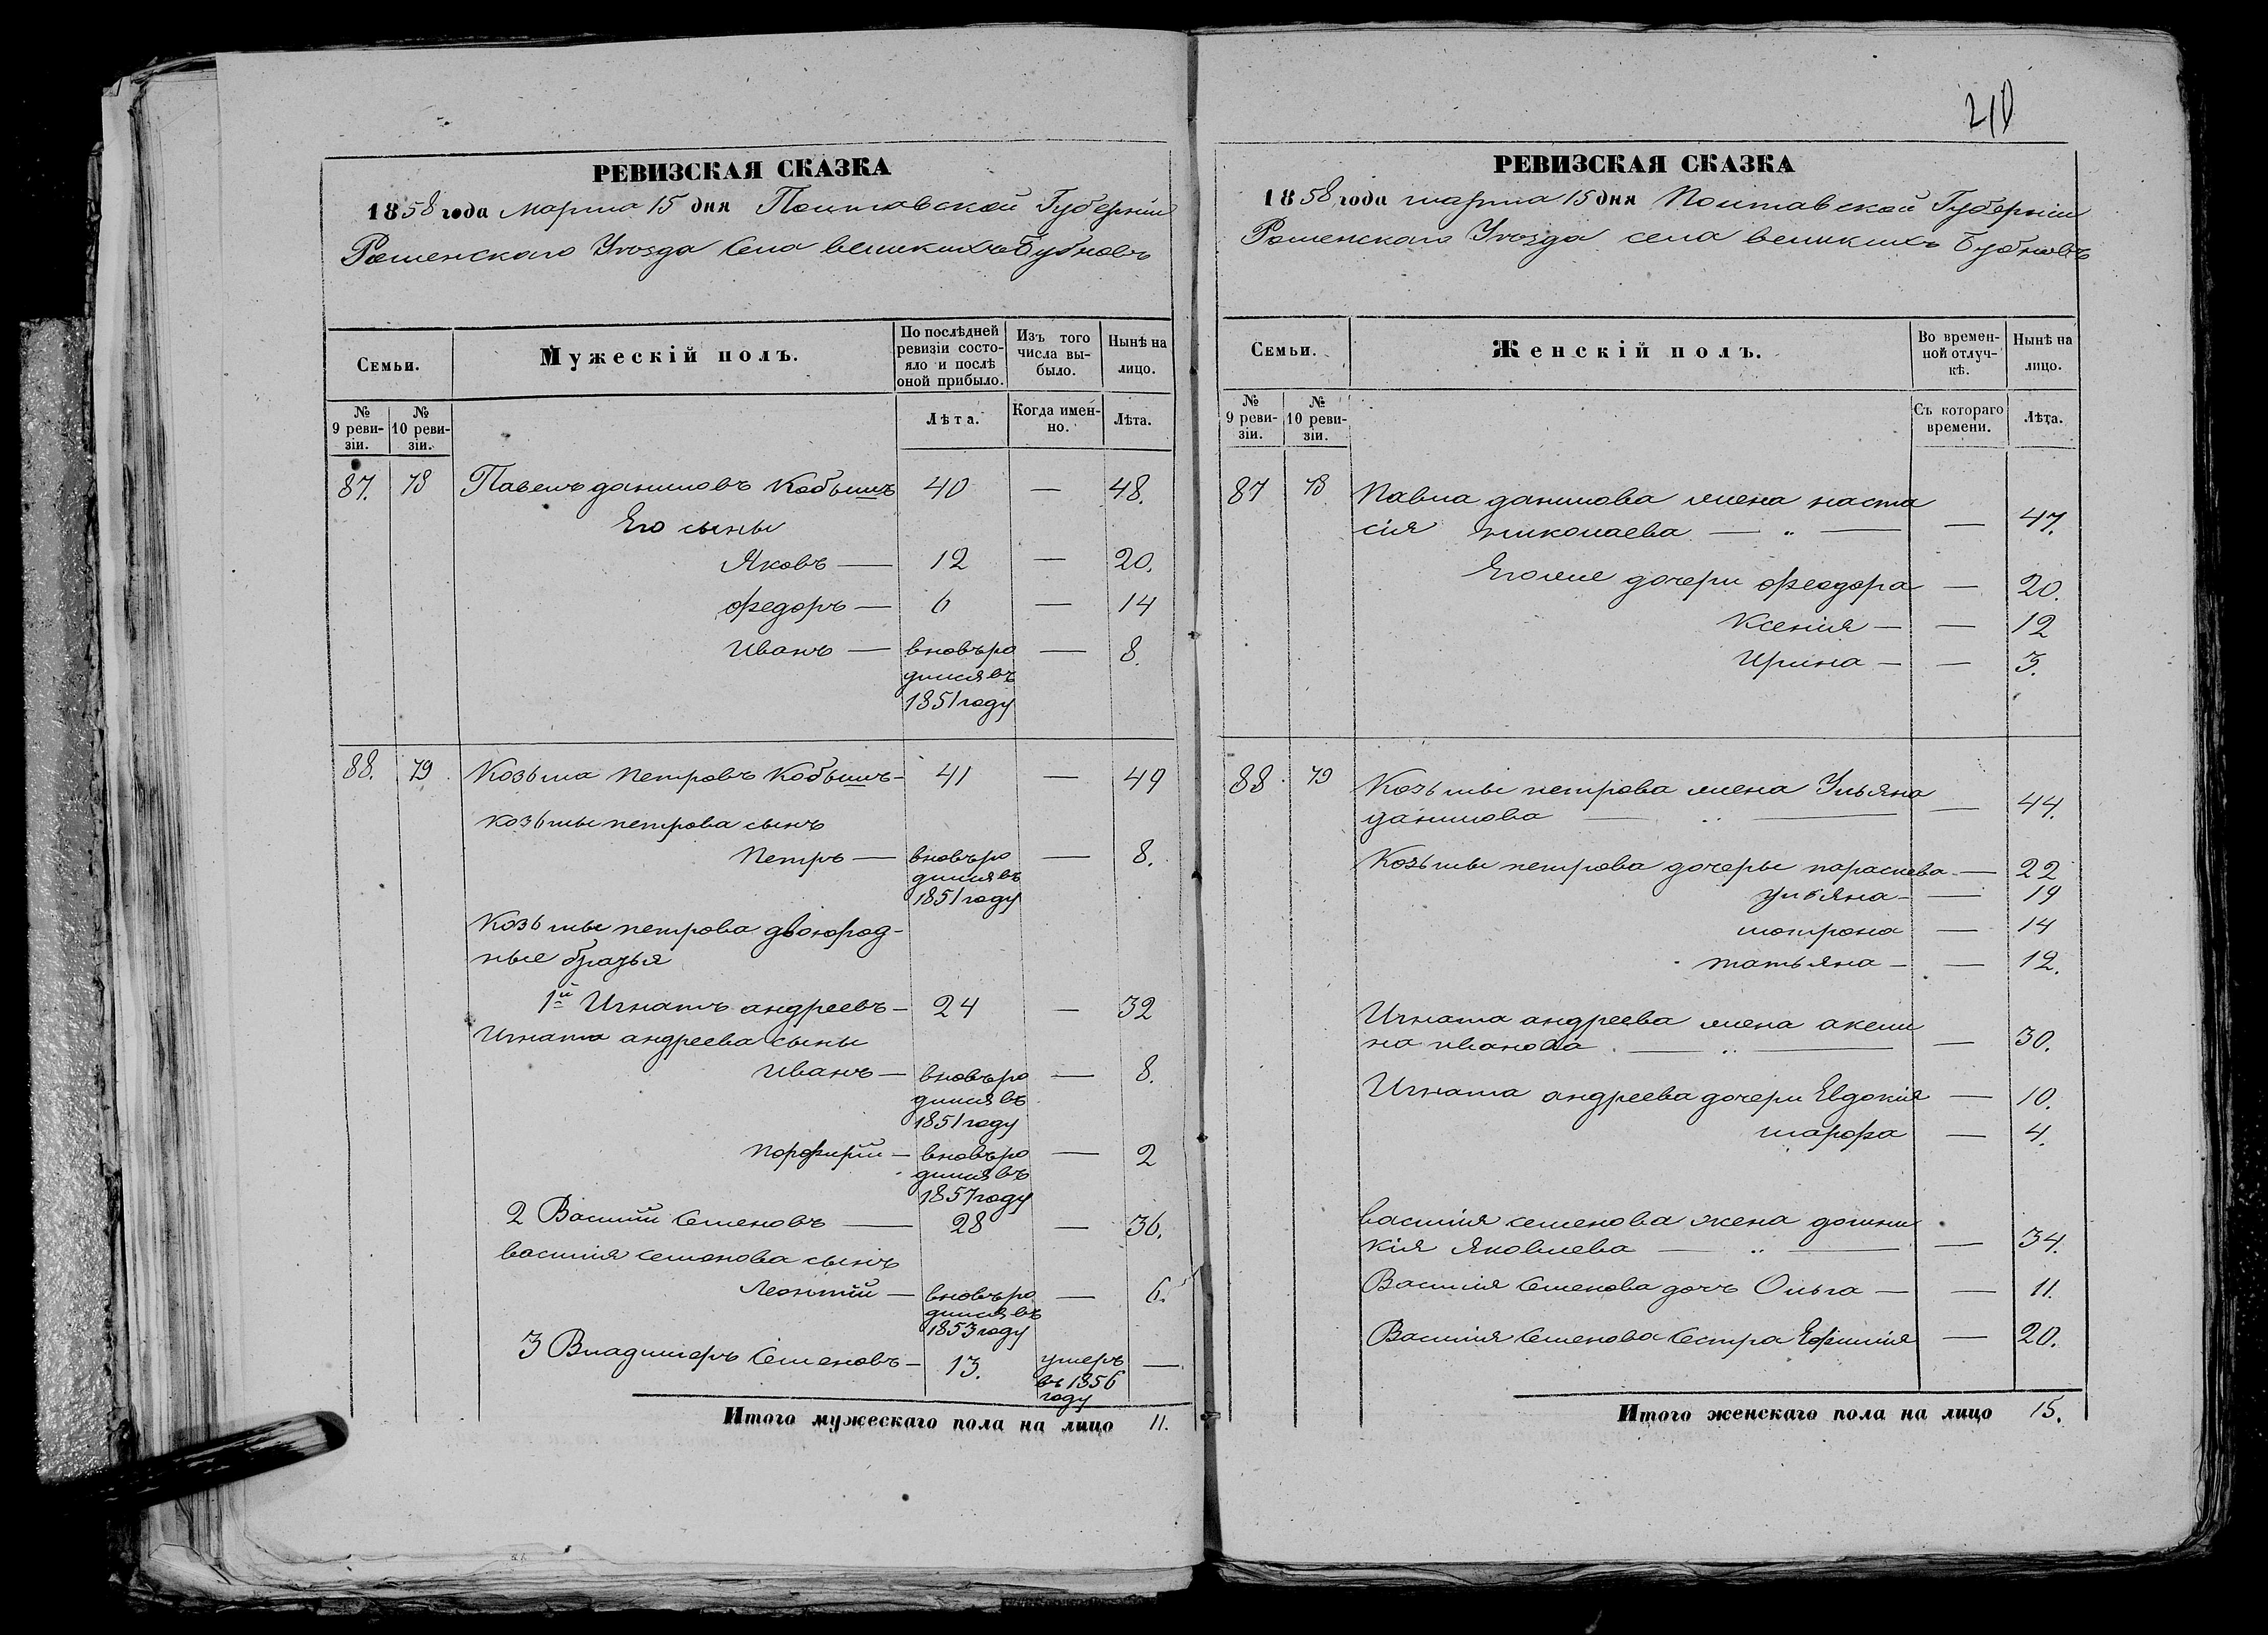 210
РЕВИЗСКАЯ СКАЗКА
1858 года марта 15 дня Полтавской Губерніи
Роменского Уѣзда Села великихъ Бубновъ
Семьи.
Мужескій полъ.
По послѣдней ревизіи состояло и послѣ оной прибыло.
Изъ того числа выбыло.
Нынѣ на лицо.
№ 9 ревизіи.
№ 10 ревизіи.
Лѣта.
Когда именно.
Лѣта.
87. 78 Павелъ даниловъ Кобышъ 40 — 48.
Его сыны
Яковъ — 12 — 20.
Федоръ — 6 — 14
Иванъ — вновь ро — 8.
дился въ
1851 году
88. 79 Козьма Петровъ Кобышъ — 41 — 49
козьмы петрова сынъ
Петръ — вновь ро — 8.
дился въ
1851 году
Козьмы петрова двоюрод-
ные братья
1й Игнатъ андреевъ — 24 — 32
Игната андреева сыны
Иванъ — вновь ро — 8.
дился въ
1851 году
Порфирій — вновь ро — 2
дился въ
1857 году
2 Василій Семеновъ — 28 — 36.
василія семенова сынъ
Леонтій — вновь ро — 6.
дился въ
1853 году
3 Владимеръ Семеновъ — 13. умеръ —
въ 1856
году
Итого мужескаго пола на лицо 11.
РЕВИЗСКАЯ СКАЗКА
1858 года марта 15 дня Полтавской Губерніи
Роменского Уѣзда села великихъ Бубновъ
Семьи.
Женскій полъ.
Во временной отлучкѣ.
Нынѣ на лицо.
№ 9 ревизіи.
№ 10 ревизіи.
Съ котораго времени.
Лѣта.
87 78 Павла данилова жена наста
сія николаева — „ — — 47.
Его же дочери Феодора — 20.
Ксенія — — 12
Ирина — — 3.
88. 79 Козьмы петрова жена Ульяна
данилова — „ — — 44.
Козьмы петрова дочеры параскева — 22
ульяна — — 19
мотрона — 14
татьяна — — 12.
Игната андреева жена акели
на иванова — „ — — 30.
Игната андреева дочери Евдокія — 10.
марфа — 4.
василія семенова жена домни
кія Яковлева — „ — — 34.
Василія Семенова дочь Ольга — — 11.
Василія Семенова Сестра Ефимія — 20.
Итого женскаго пола на лицо 15.